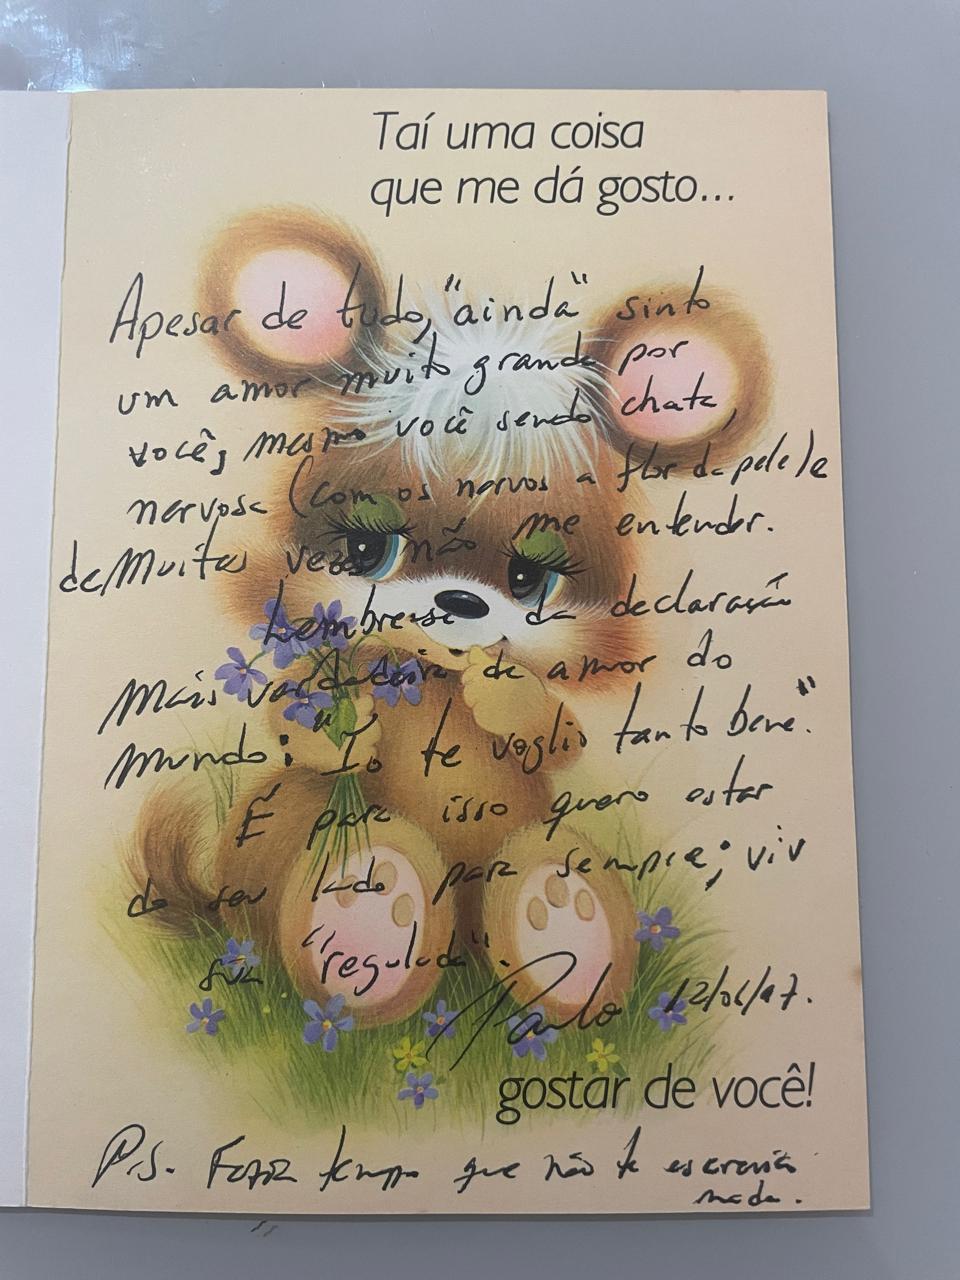 Taí uma coisa
que me dá gosto...
Apesar de tudo, "ainda" sinto
um amor muito grande por
você, mesmo você sendo chata,
nervosa (com os nervos a flor da pele) e
de muitas vezes não me entender.
Lembre-se da declaração
mais verdadeira de amor do
mundo: "Io te voglio tanto bene".
É para isso quero estar
do seu lado para sempre; viv
sua "regulada".
Paulo 12/06/97.
gostar de você!
P.S. Fazia tempo que não te escrevia
nada.